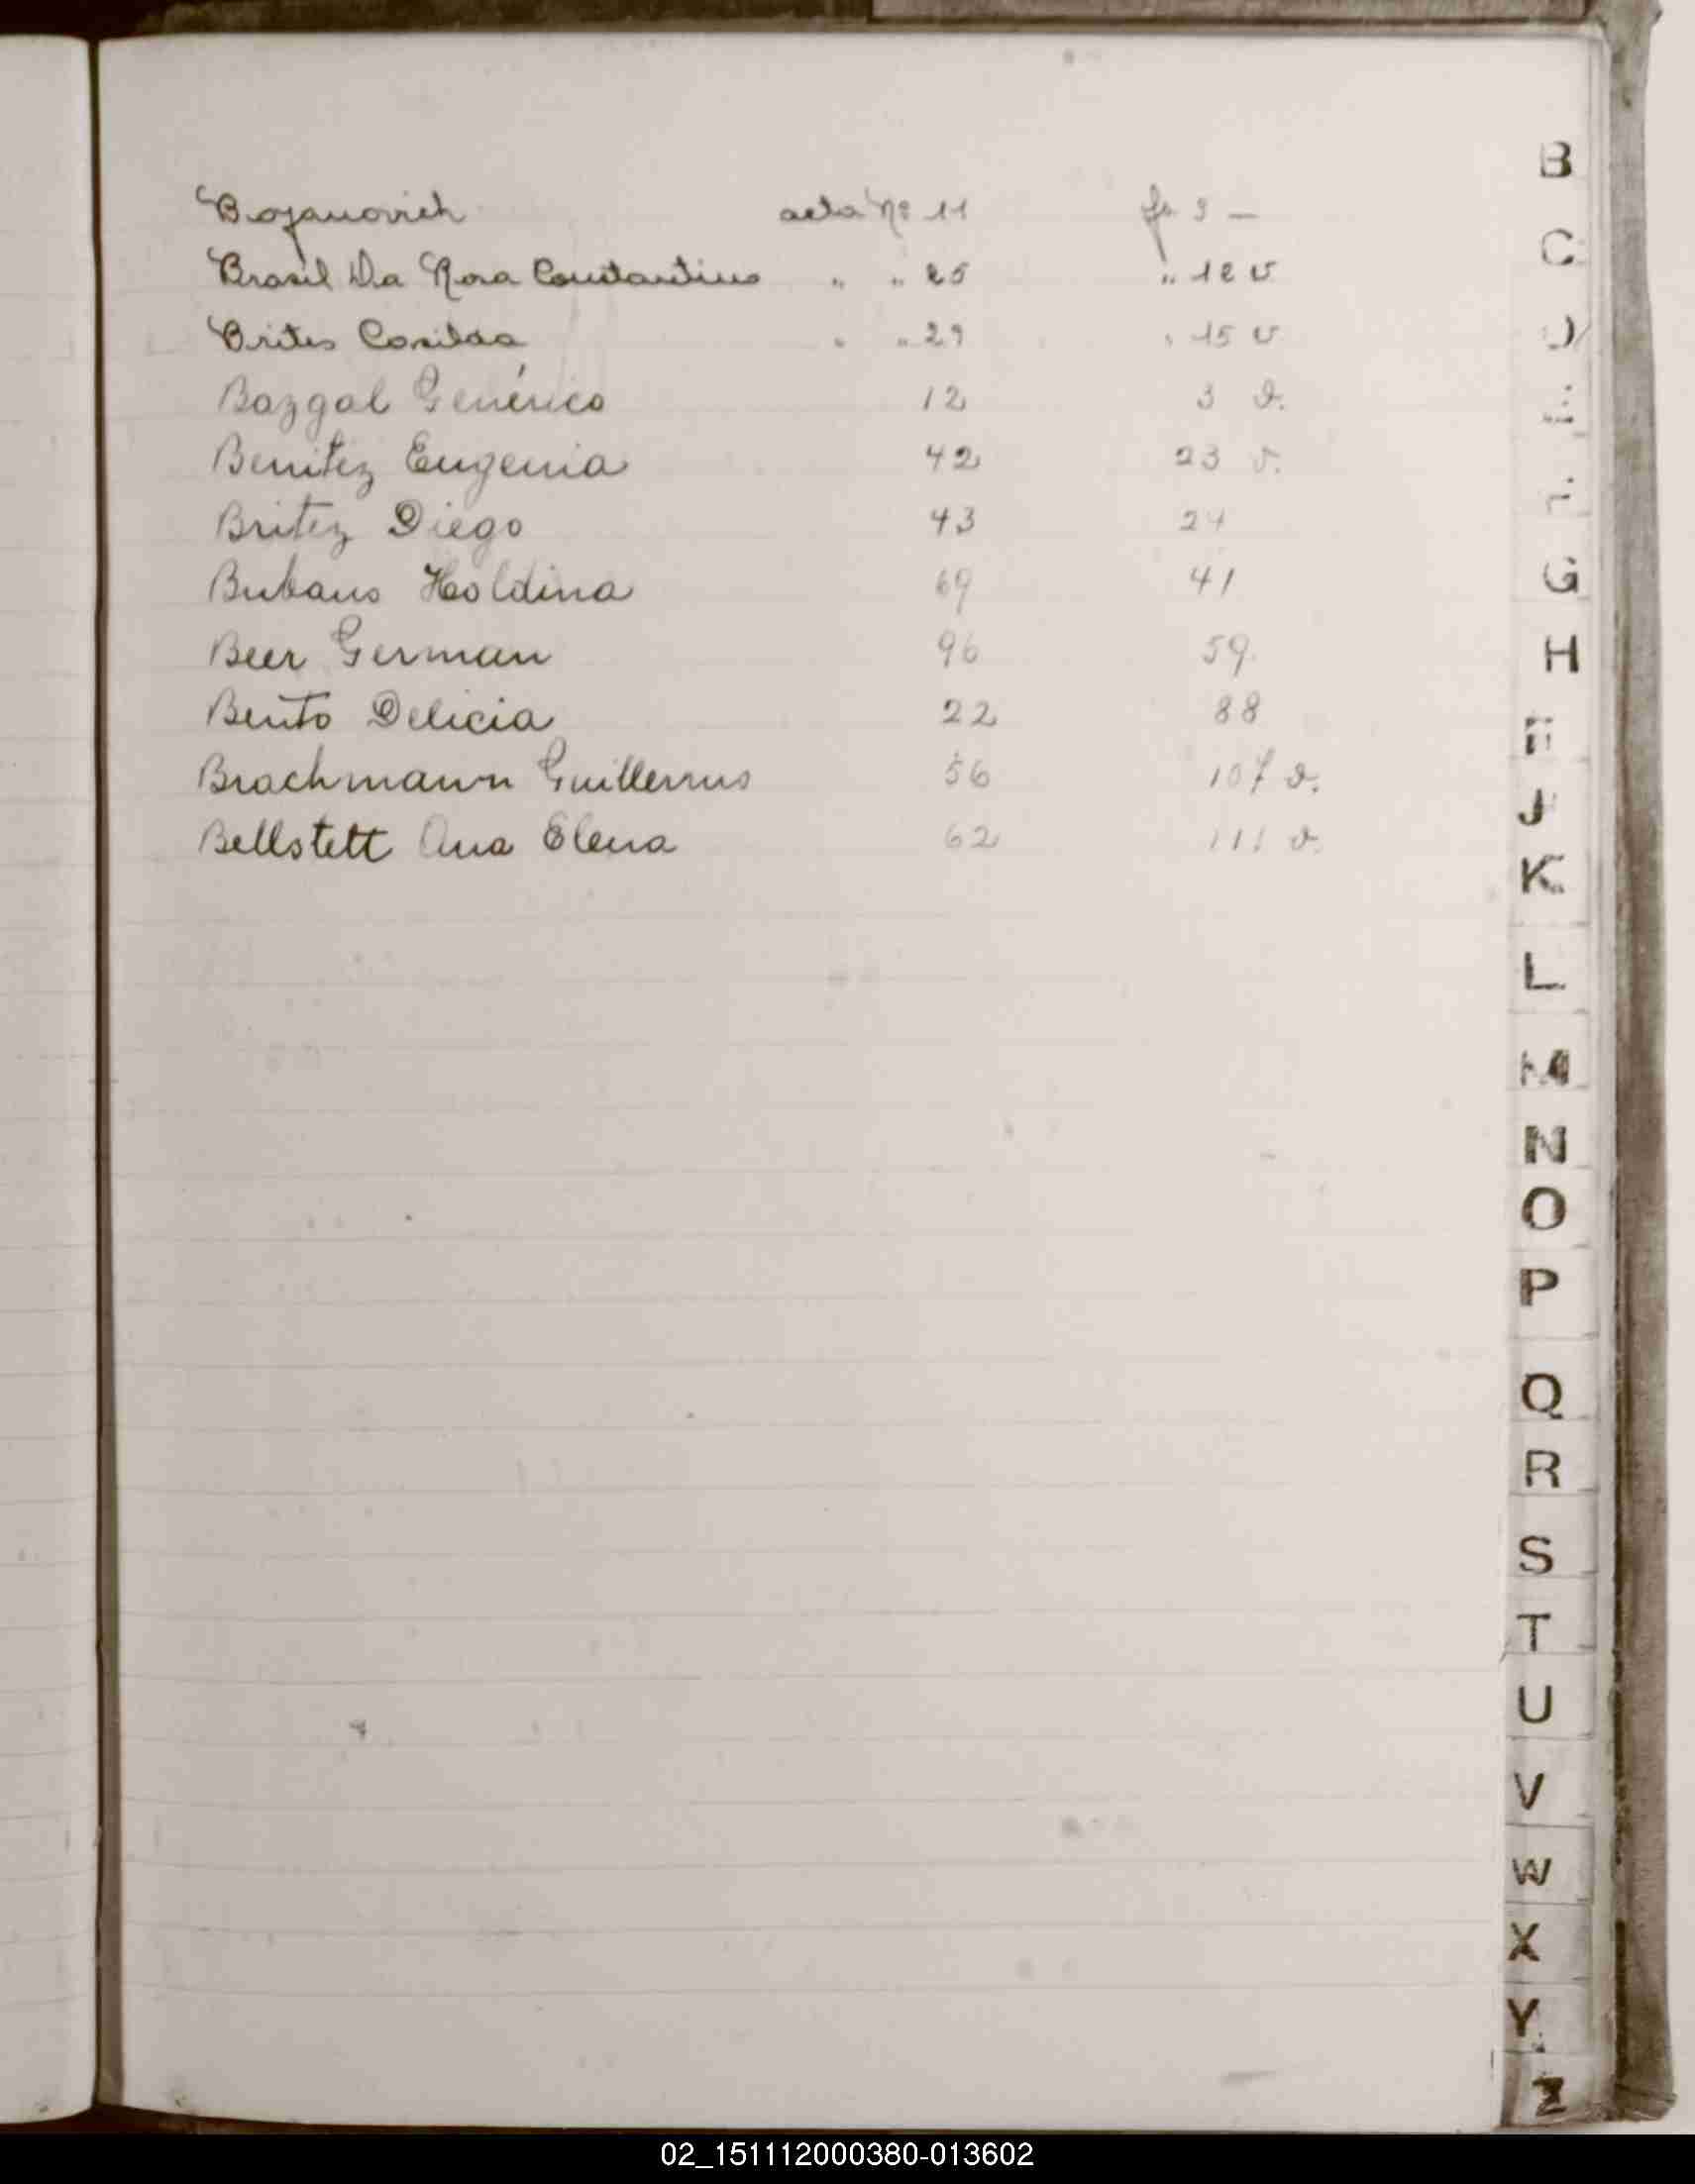 B
Bojanovich acta Nº 11 fo 9 —
Brasil Da Rosa Constantino " " 25 " 12 v
Brites Casilda " " 29 " 15 v
Bazgal Genérico 12 3 v.
Benitez Eugenia 42 23 v.
Britez Diego 43 24
Holdina 69 41
Beer German 96 59
Bento Delicia 22 88
Brachmann Guillermo 56 107 v.
Bellstett Ana Elena 62 111 v.
C
D
G
H
J
K
L
M
N
O
P
Q
R
S
T
U
V
W
X
Y
Z
02_151112000380-013602